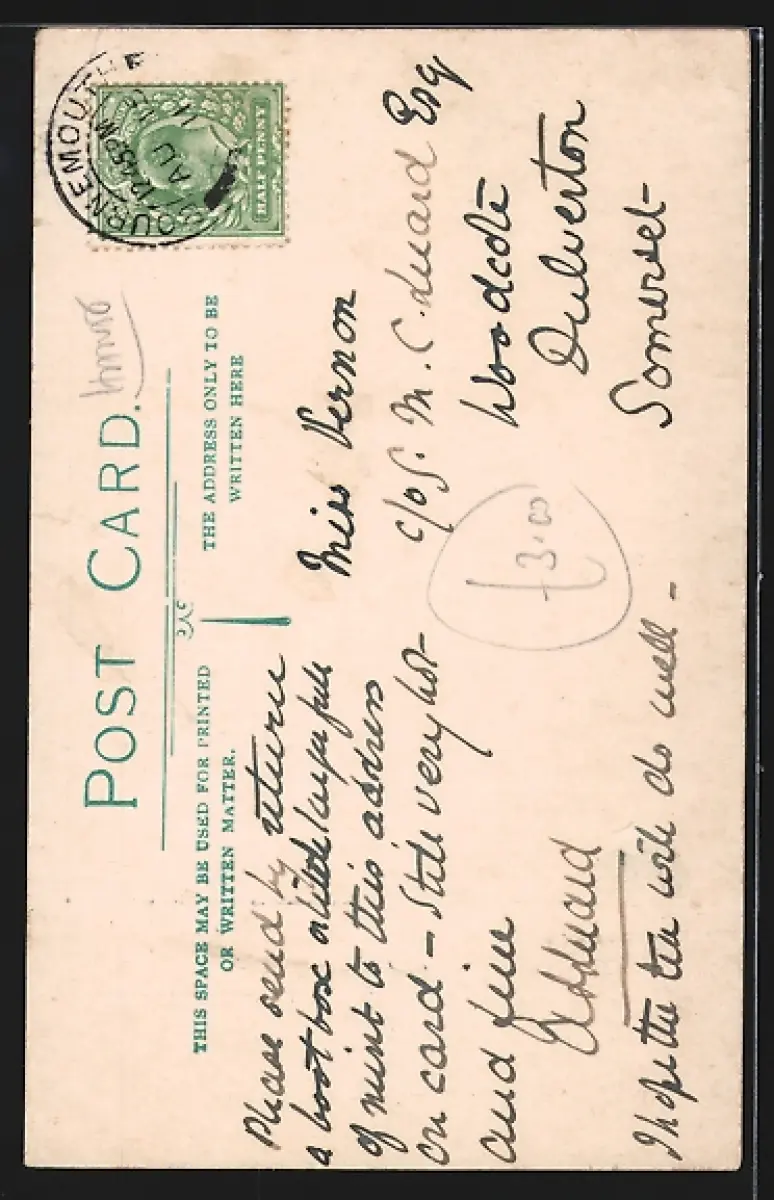 POST CARD.
THIS SPACE MAY BE USED FOR PRINTED
OR WRITTEN MATTER.
THE ADDRESS ONLY TO BE
WRITTEN HERE
BOURNEMOUTH
12.45PM
AU
11
HALF PENNY
Please send by return
a boot box or little larger full
of mint to this address
on card - Still very hot
and fine
I hope the tea will do well -
Miss Vernon
c/o G. M. C. Esq
Woodcote
Dulverton
Somerset
£3.00